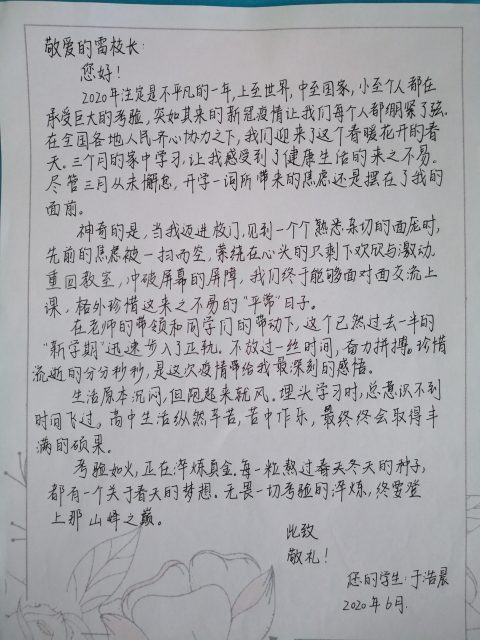 敬爱的雷校长:
您好!
2020年注定是不平凡的一年,上至世界,中至国家,小至个人都在
承受巨大的考验,突如其来的新冠疫情让我们每个人都绷紧了弦。
在全国各地人民齐心协力之下,我们迎来了这个春暖花开的春
天。三个月的家中学习,让我感受到了健康生活的来之不易。
尽管三月从未懈怠,开学一词所带来的焦虑还是摆在了我的
面前。
神奇的是,当我迈进校门,见到一个个熟悉亲切的面庞时,
先前的焦虑被一扫而空,萦绕在心头的只剩下欢欣与激动。
重回教室,冲破屏幕的屏障,我们终于能够面对面交流上
课,格外珍惜这来之不易的“平常”日子。
在老师的带领和同学们的带动下,这个已然过去一半的
“新学期”迅速步入了正轨。不放过一丝时间,奋力拼搏。珍惜
流逝的分分秒秒,是这次疫情带给我最深刻的感悟。
生活原本沉闷,但跑起来就风。埋头学习时,总意识不到
时间飞过,高中生活纵然辛苦,苦中作乐,最终终会取得丰
满的硕果。
考验如火,正在淬炼真金。每一粒熬过春天冬天的种子,
都有一个关于春天的梦想。无畏一切考验的淬炼,终要登
上那山峰之巅。
此致
敬礼!
您的学生:于浩晨
2020年6月.